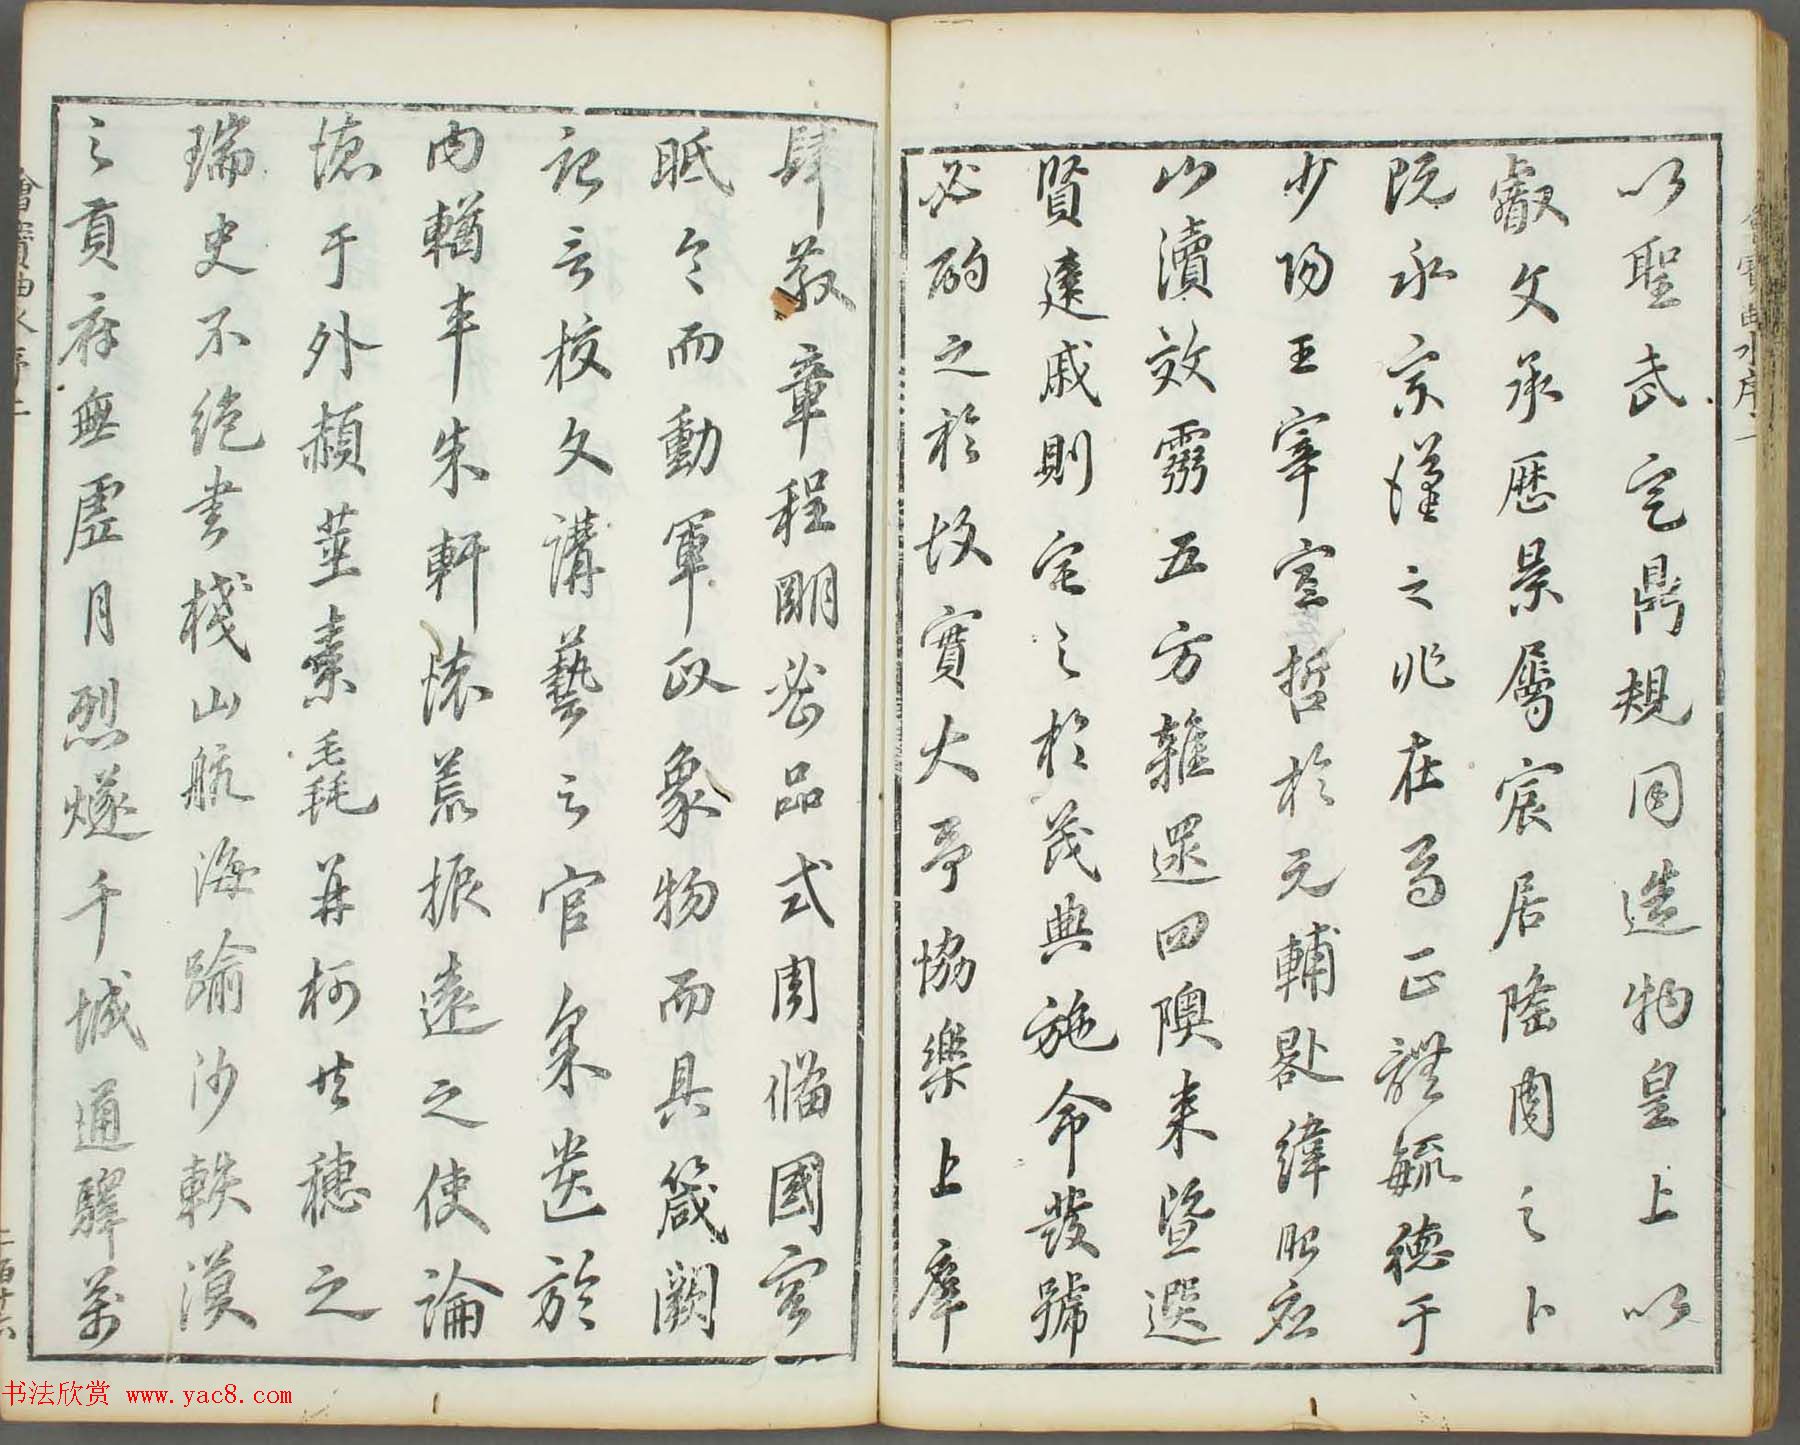 以聖武定鼎規同造物皇上以
叡文承歷景屬宸居隆周之卜
既永宗漢之兆在焉正體毓德于
少陽王宰宣哲於元輔晷緯昭應
山瀆效靈五方雜遝四隩來暨選
賢建戚則宅之於茂典施命發號
必酌之於故實大予協樂上庠
肆教章程明密品式周備國容
眡令而動軍政象物而具箴闕
記言校文講藝之官采遺於
內輶車朱軒懷荒振遠之使論
德于外赬莖素毳并柯共穗之
瑞史不絕書棧山航海踰沙軼漠
之貢府無虛月烈燧千城通驛萬
書法欣赏 www.yac8.com